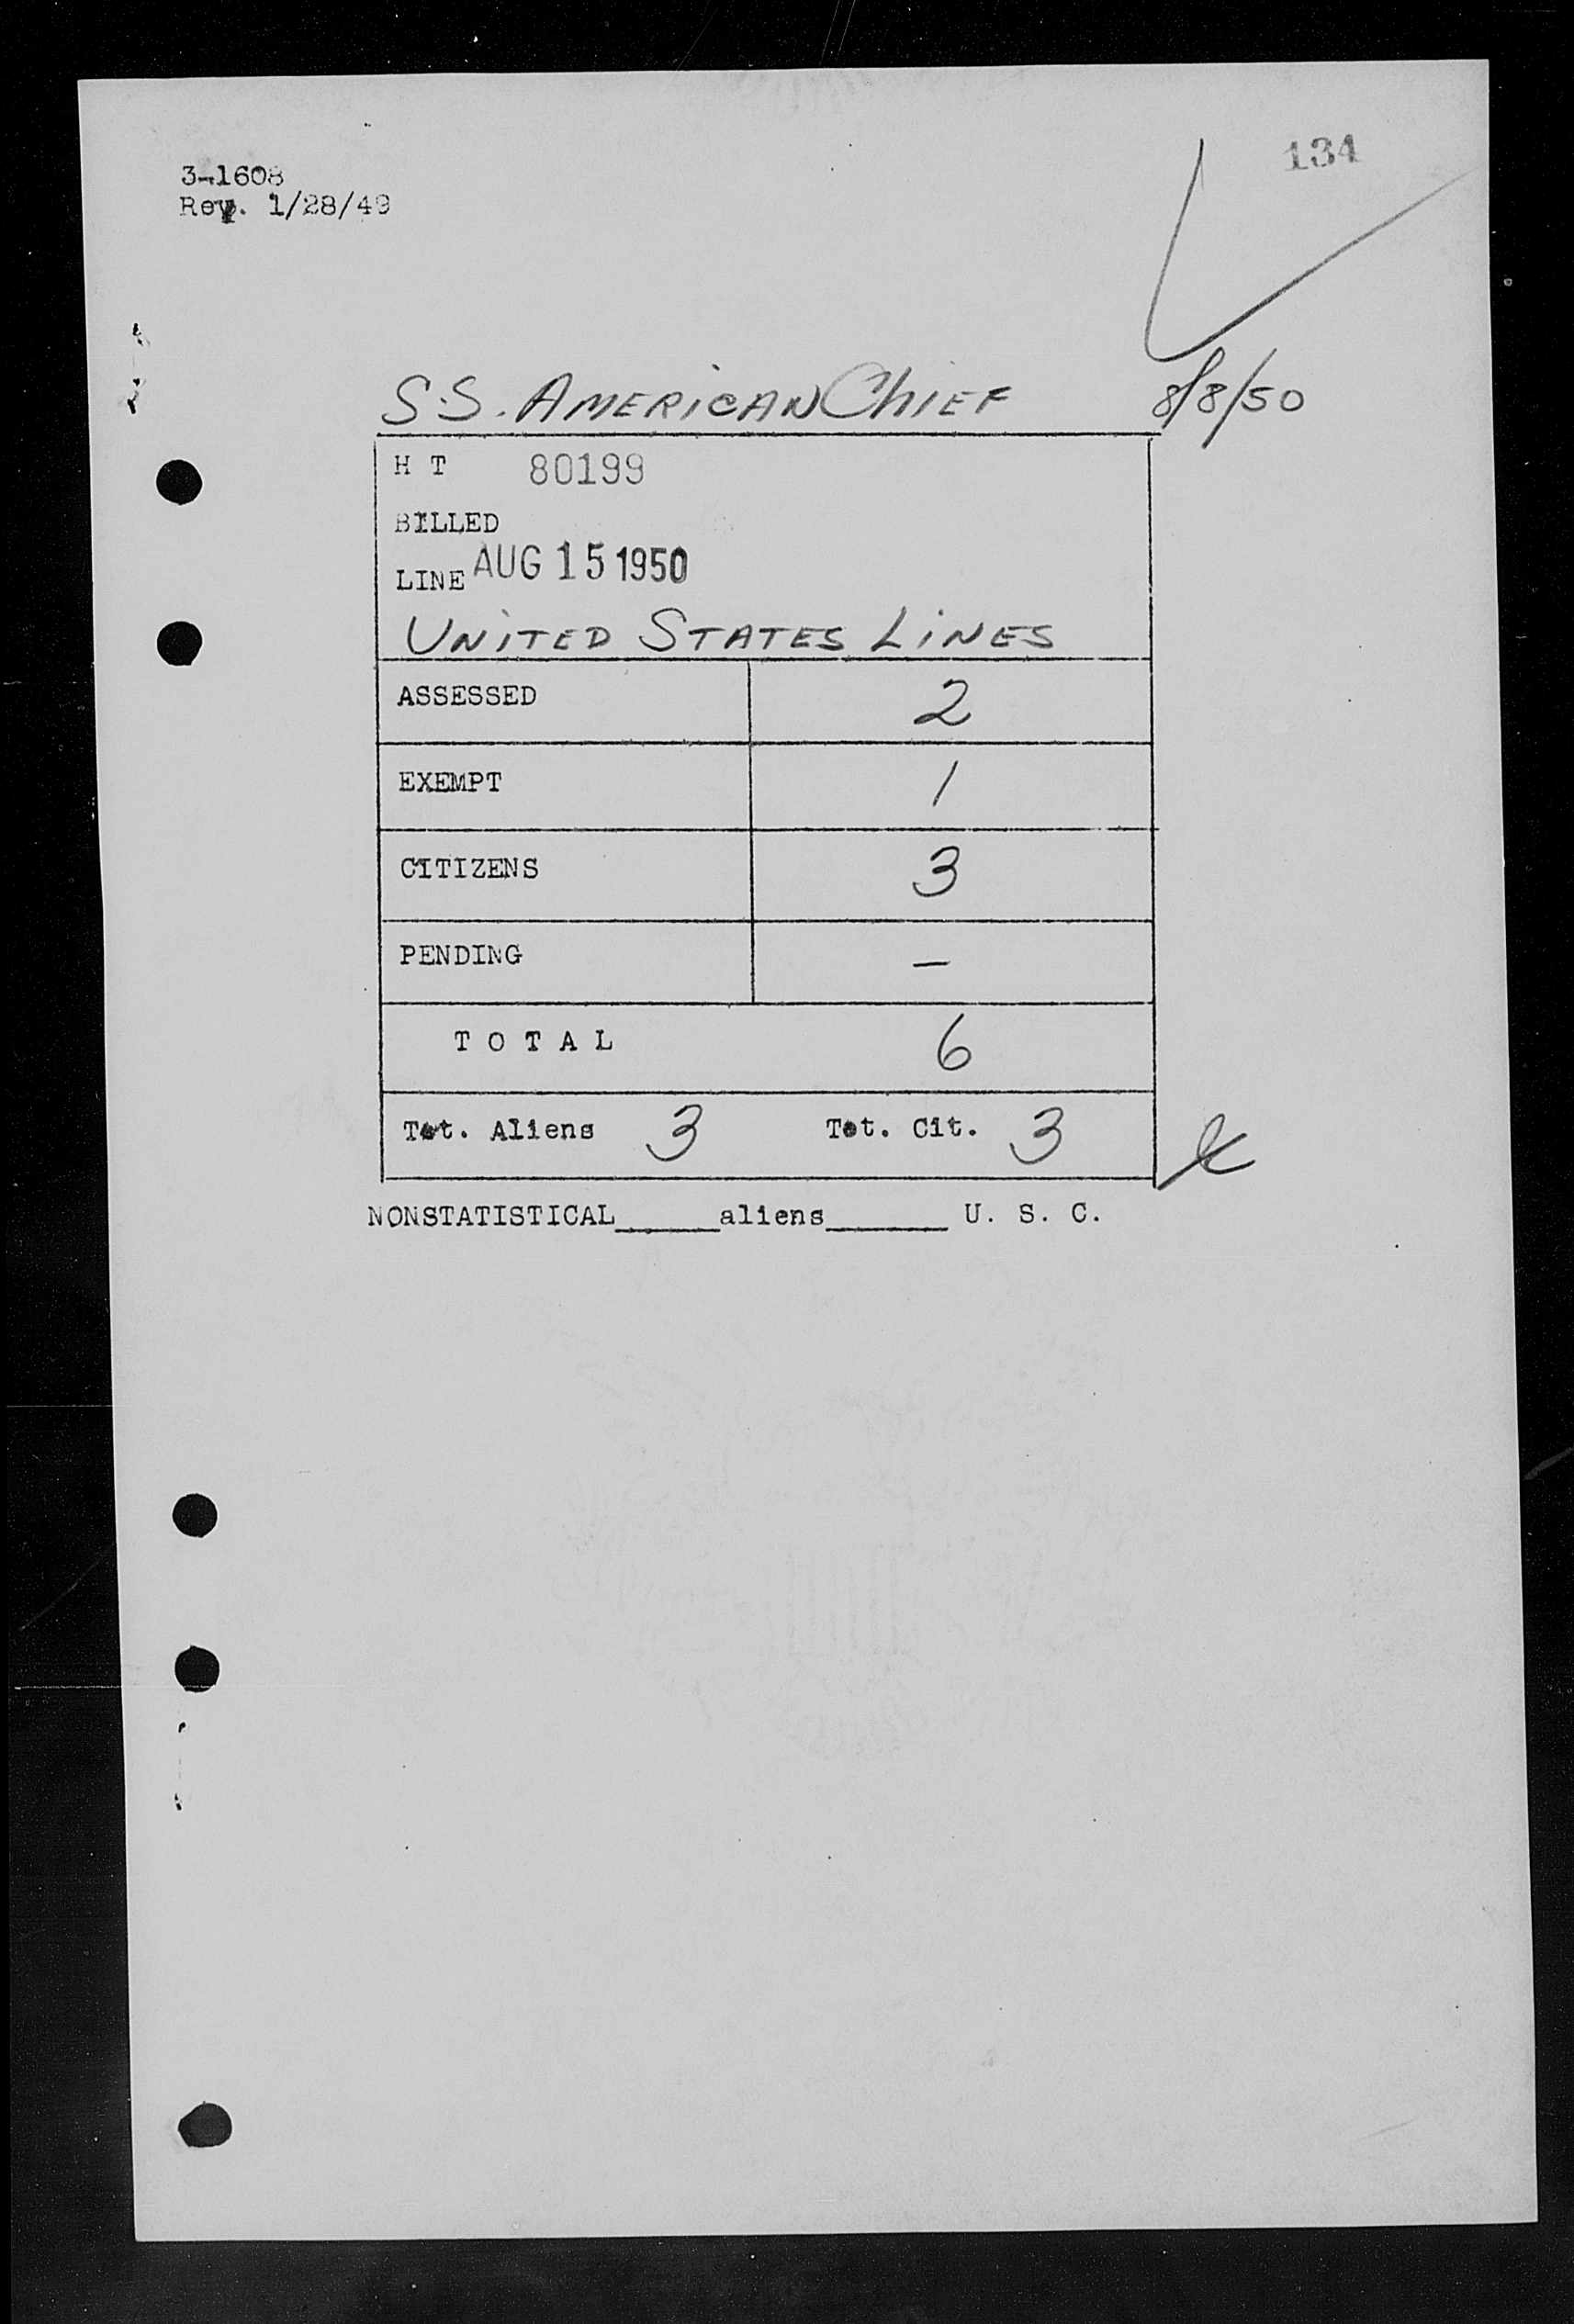 134
3-1608
Rev. 1/28/49
S.S. AMERICAN CHIEF 8/8/50
H T 80199
BILLED
LINE AUG 15 1950
UNITED STATES LINES
ASSESSED 2
EXEMPT 1
CITIZENS 3
PENDING —
T O T A L 6
Tot. Aliens 3 Tot. Cit. 3
NONSTATISTICAL______aliens_______ U. S. C.